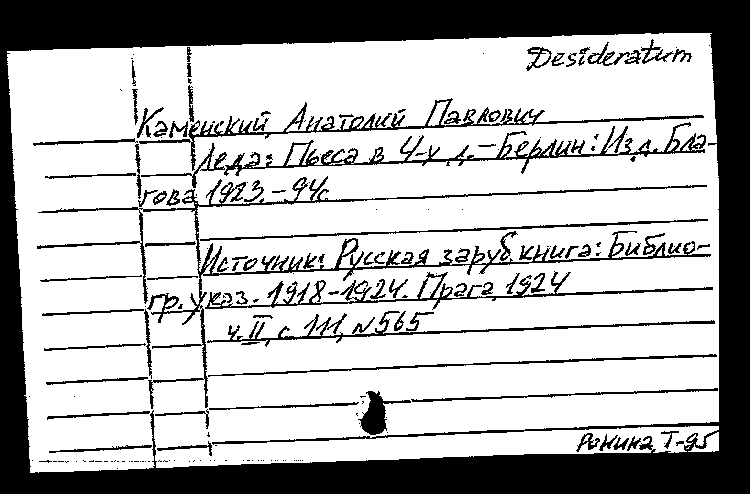 Desideratum
Каменский, Анатолий Павлович
Леда: Пьеса в 4-х д. – Берлин: Изд. Бла-
гова, 1923. – 94с.
Источник: Русская заруб. книга: Библио-
гр. указ. 1918-1924. Прага, 1924
ч. II, с. 111, N 565
Ронина, Т-95